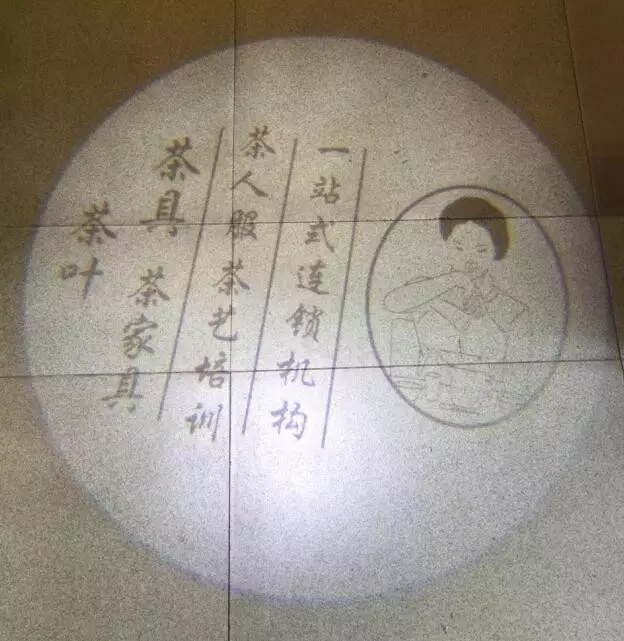 一站式连锁机构
茶人服 茶艺培训
茶具 茶家具
茶叶